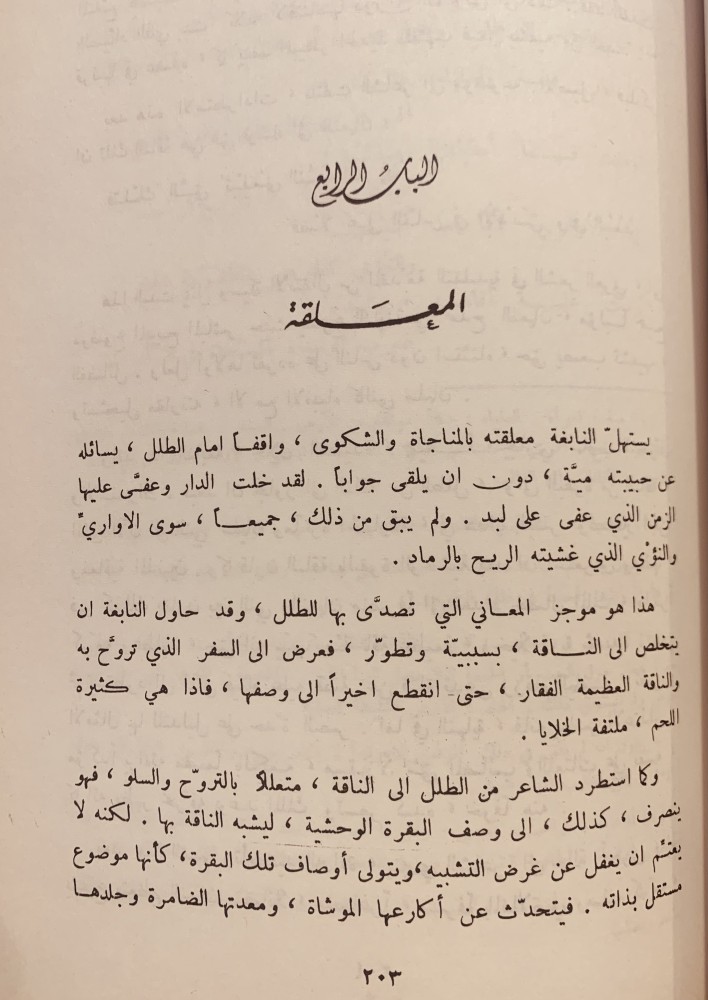 الباب الرابع
المعلقة
يستهلّ النابغة معلقته بالمناجاة والشكوى ، واقفاً امام الطلل ، يسائله
عن حبيبته ميَّة ، دون ان يلقى جواباً . لقد خلت الدار وعفَّى عليها
الزمن الذي عفى على لبد . ولم يبق من ذلك ، جميعاً ، سوى الاواريِّ
والنؤْي الذي غشيته الريح بالرماد .
هذا هو موجز المعاني التي تصدَّى بها للطلل ، وقد حاول النابغة ان
يتخلص الى الناقة ، بسببيّة وتطوّر ، فعرض الى السفر الذي تروَّح به
والناقة العظيمة الفقار ، حتى انقطع اخيراً الى وصفها ، فاذا هي كثيرة
اللحم ، ملتفة الخلايا .
وكما استطرد الشاعر من الطلل الى الناقة ، متعللاً بالتروّح والسلو ، فهو
ينصرف ، كذلك ، الى وصف البقرة الوحشية ، ليشبه الناقة بها . لكنه لا
يعتّم ان يغفل عن غرض التشبيه ،ويتولى أوصاف تلك البقرة، كأنها موضوع
مستقل بذاته . فيتحدّث عن أكارعها الموشاة ، ومعدتها الضامرة وجلدها
٢٠٣